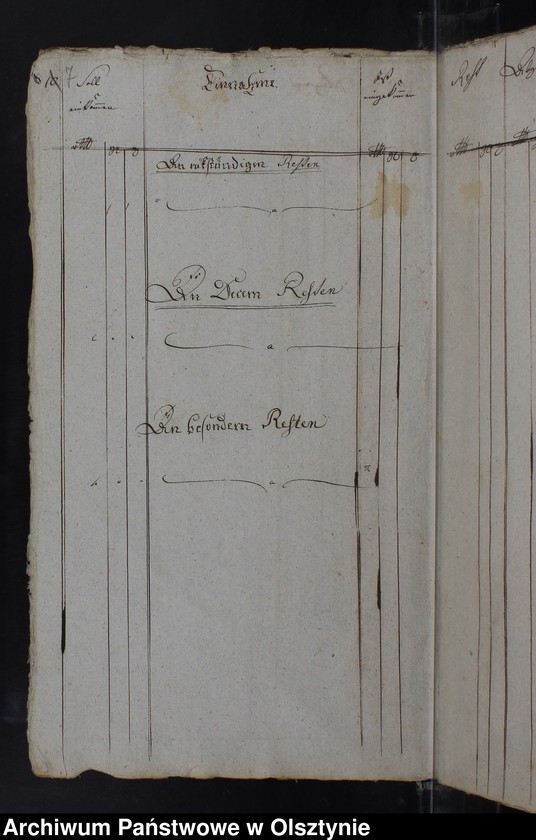 7 Soll
einkommen
Einnahme
Ist
eingekommen
Rest
An rükständigen Resten
An Decem Resten
An besondern Resten
Archiwum Państwowe w Olsztynie